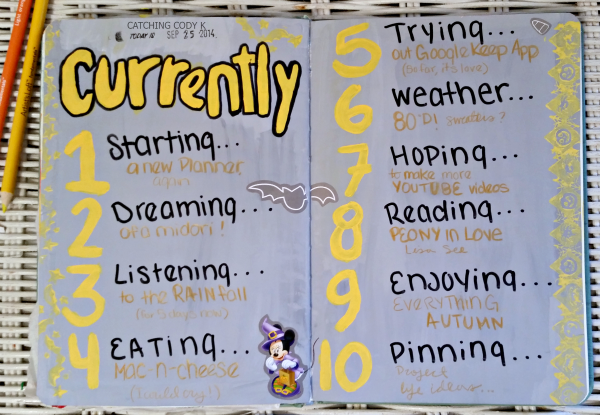 CATCHING CODY K
TODAY IS SEP 25 2014
Currently
1 Starting...
a new Planner
again
2 Dreaming...
OF midori!
3 Listening...
to the RAINfall
(for 5 days now)
4 EATING...
MAC-n-cheese
(I would cry!)
5 Trying...
out Google Keep App
(So far, it's love)
6 weather...
80°D! sweaters?
7 HOPING...
to make more
YOUTUBE videos
8 Reading...
PEONY IN Love
Lisa See
9 ENJOYING...
EVERYTHING
AUTUMN
10 Pinning...
Project
life ideas...